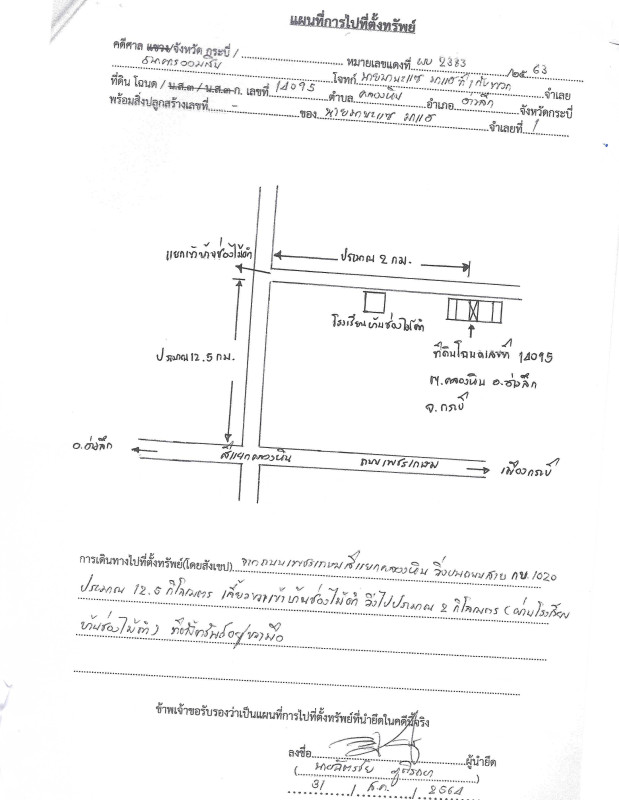 แผนที่การไปที่ตั้งทรัพย์
คดีศาล แขวง/จังหวัด กระบี่ / หมายเลขแดงที่ ผบ 2383 /๒๕ 63
ธนาคารออมสิน โจทก์ จำเลย
ที่ดิน โฉนด / น.ส.๓ / น.ส.๓ ก. เลขที่ 14095 ตำบล คลองหิน อำเภอ อ่าวลึก จังหวัดกระบี่
พร้อมสิ่งปลูกสร้างเลขที่ - ของ จำเลยที่ 1
แยกเข้าบ้านช่องไม้ดำ
ประมาณ 2 กม.
โรงเรียนบ้านช่องไม้ดำ
ที่ดินโฉนดเลขที่ 14095
ต.คลองหิน อ.อ่าวลึก
จ.กระบี่
ประมาณ 12.5 กม.
อ.อ่าวลึก
สี่แยกคลองหิน
ถนนเพชรเกษม
เมืองกระบี่
การเดินทางไปที่ตั้งทรัพย์(โดยสังเขป) จากถนนเพชรเกษมสี่แยกคลองหิน วิ่งบนถนนสาย กบ.1020
ประมาณ 12.5 กิโลเมตร เลี้ยวขวาเข้าบ้านช่องไม้ดำ วิ่งไปประมาณ 2 กิโลเมตร (ผ่านโรงเรียน
บ้านช่องไม้ดำ) ที่ตั้งทรัพย์อยู่ขวามือ
ข้าพเจ้าขอรับรองว่าเป็นแผนที่การไปที่ตั้งทรัพย์ที่นำยึดในคดีนี้จริง
ลงชื่อ ผู้นำยึด
31 / ธ.ค. / 2564